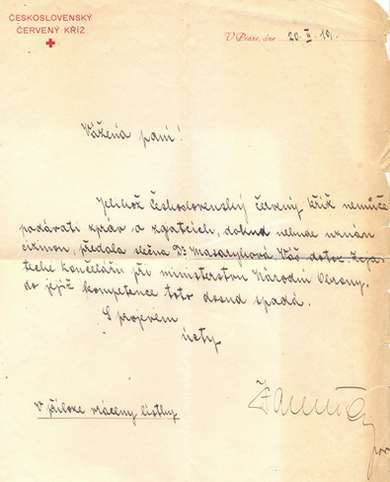 ČESKOSLOVENSKÝ
ČERVENÝ KŘÍŽ
V Praze, dne 20. II. 19.
Vážená paní!
Jelikož Československý červený kříž nemůže
podávati zpráv o zajatcích, dokud nebude uznán
cizinou, předala slečna Dr Masaryková Váš dotaz Zaja-
tecké kanceláři při ministerstvu Národní Obrany,
do jejíž kompetence toto dosud spadá.
S projevem
úcty
V příloze vráceny lístky